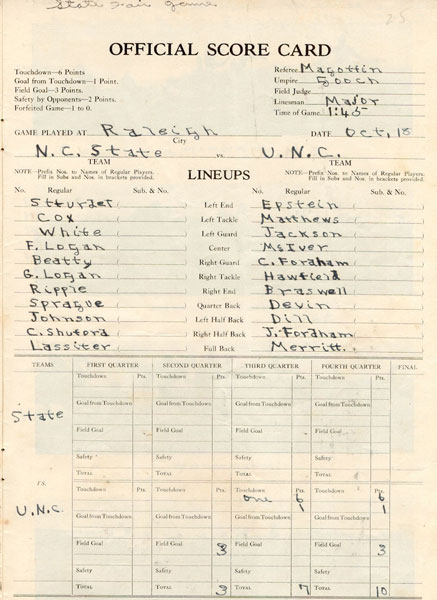 State Fair Game
25
OFFICIAL SCORE CARD
Touchdown—6 Points
Goal from Touchdown—1 Point.
Field Goal—3 Points.
Safety by Opponents—2 Points.
Forfeited Game—1 to 0.
Referee Magoffin
Umpire Gooch
Field Judge
Linesman Major
Time of Game 1:45
GAME PLAYED AT Raleigh DATE Oct, 18
City
N.C. State vs. U.N.C.
TEAM TEAM
NOTE—Prefix Nos. to Names of Regular Players. Fill in Subs and Nos. in brackets provided.
LINEUPS
NOTE—Prefix Nos. to Names of Regular Players. Fill in Subs and Nos. in brackets provided.
No. Regular Sub. & No. No. Regular Sub. & No.
Sturder ( Left End Epstein (
Cox ( Left Tackle Matthews (
White ( Left Guard Jackson (
F. Logan ( Center McIver (
Beatty ( Right Guard C. Fordham (
G. Logan ( Right Tackle Hawfield (
Ripple ( Right End Braswell (
Sprague ( Quarter Back Devin (
Johnson ( Left Half Back Dill (
C. Shuford ( Right Half Back J. Fordham (
Lassiter ( Full Back Merritt. (
TEAMS FIRST QUARTER SECOND QUARTER THIRD QUARTER FOURTH QUARTER FINAL
Touchdown Pts. Touchdown Pts. Touchdown Pts. Touchdown Pts.
Goal from Touchdown Goal from Touchdown Goal from Touchdown Goal from Touchdown
State
Field Goal Field Goal Field Goal Field Goal
Safety Safety Safety Safety
TOTAL TOTAL TOTAL TOTAL
VS.
Touchdown Pts. Touchdown Pts. Touchdown Pts. Touchdown Pts.
one 6 6
U.N.C.
Goal from Touchdown Goal from Touchdown Goal from Touchdown 1 Goal from Touchdown 1
Field Goal Field Goal 3 Field Goal Field Goal 3
Safety Safety Safety Safety
TOTAL TOTAL 3 TOTAL 7 TOTAL 10